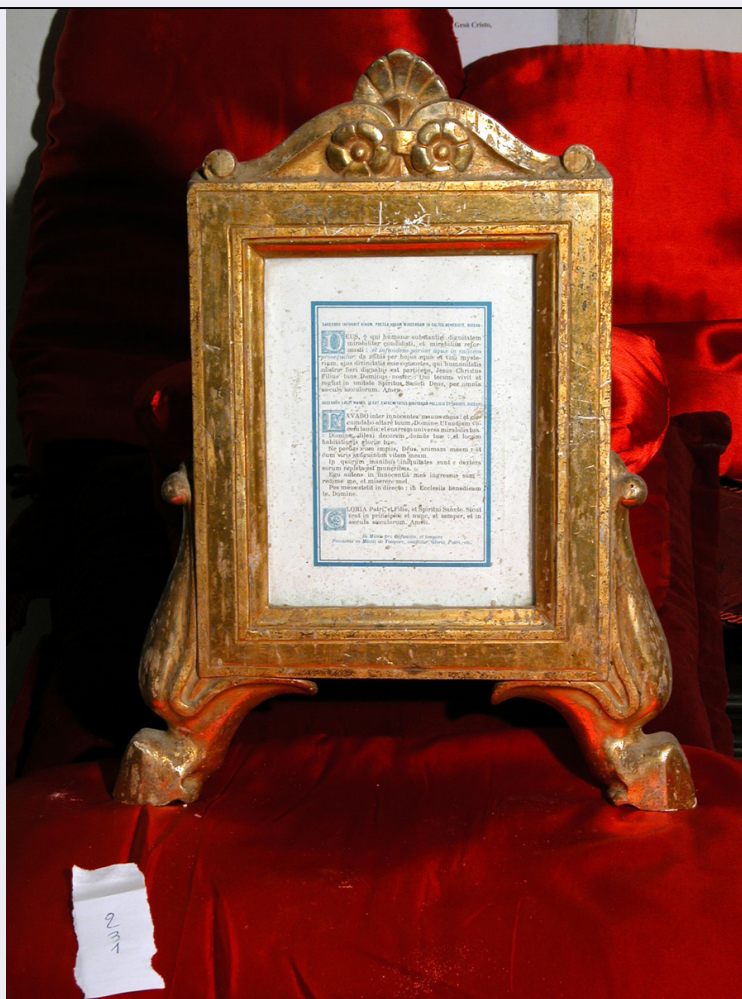 Gesù Cristo,
DEUS, qui humanæ substantiæ dignitatem
mirabiliter condidisti, et mirabilius refor-
masti: da nobis per hujus aquæ et vini myste-
rium, ejus divinitatis esse consortes, qui humanitatis
nostræ fieri dignatus est particeps, Jesus Christus
Filius tuus Dominus noster: Qui tecum vivit et
regnat in unitate Spiritus Sancti Deus, per omnia
sæcula sæculorum. Amen.
LAVABO inter innocentes manus meas: et cir-
cumdabo altare tuum, Domine. Ut audiam vo-
cem laudis: et enarrem universa mirabilia tua.
Domine, dilexi decorem domus tuæ: et locum
habitationis gloriæ tuæ.
Ne perdas cum impiis, Deus, animam meam: et
cum viris sanguinum vitam meam.
In quorum manibus iniquitates sunt: dextera
eorum repleta est muneribus.
Ego autem in innocentia mea ingressus sum:
redime me, et miserere mei.
Pes meus stetit in directo: in Ecclesiis benedicam
te, Domine.
GLORIA Patri, et Filio, et Spiritui Sancto. Sicut
erat in principio et nunc, et semper, et in
sæcula sæculorum. Amen.
2
3
1